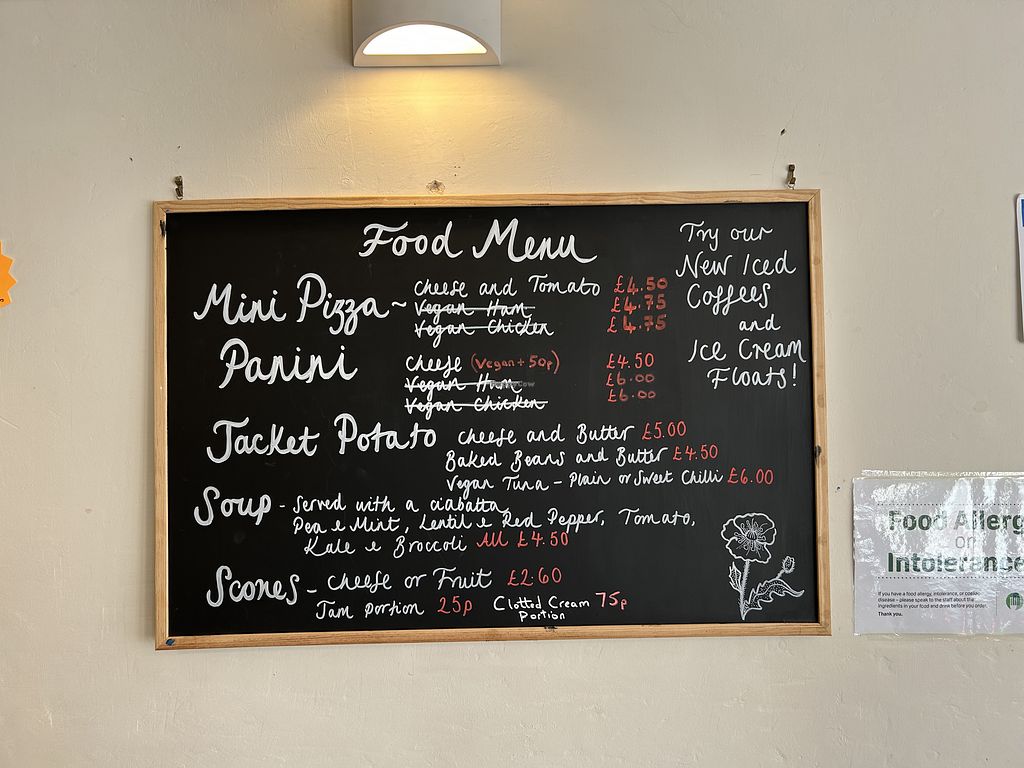 Food Menu
Mini Pizza ~ Cheese and Tomato £4.50
Vegan Ham £4.75
Vegan Chicken £4.75
Panini Cheese (Vegan + 50p) £4.50
Vegan Ham £6.00
Vegan Chicken £6.00
Jacket Potato Cheese and Butter £5.00
Baked Beans and Butter £4.50
Vegan Tuna - Plain or Sweet Chilli £6.00
Soup - Served with a ciabatta
Pea & Mint, Lentil & Red Pepper, Tomato,
Kale & Broccoli All £4.50
Scones - Cheese or Fruit £2.60
Jam portion 25p Clotted Cream 75p
Portion
Try our
New Iced
Coffees
and
Ice Cream
Floats!
Food Allerg
or
Intolerance
If you have a food allergy, intolerance, or coeliac
disease – please speak to the staff about the
ingredients in your food and drink before you order.
Thank you.